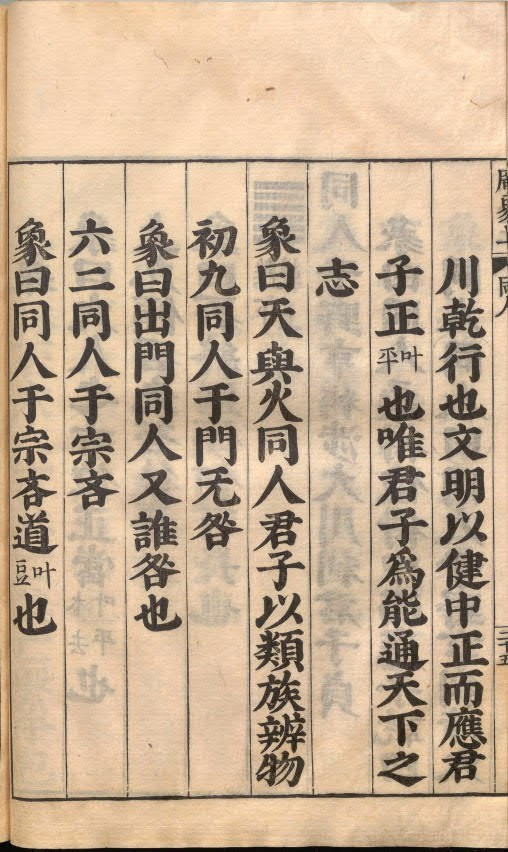 同人
川乾行也文明以健中正而應君
子正叶平也唯君子為能通天下之
志
象曰天與火同人君子以類族辨物
初九同人于門无咎
象曰出門同人又誰咎也
六二同人于宗吝
象曰同人于宗吝道叶豆也